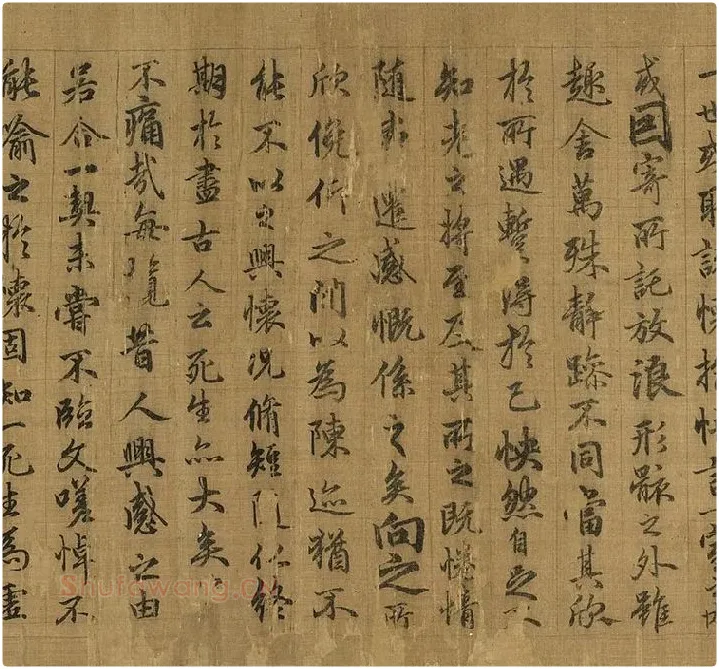 一世或取諸懷抱悟言一室之
或因寄所託放浪形骸之外雖
趣舍萬殊靜躁不同當其欣
於所遇暫得於己怏然自足不
知老之將至及其所之既惓情
隨事遷感慨係之矣向之所
欣俛仰之閒以為陳迹猶不
能不以之興懷況脩短隨化終
期於盡古人云死生亦大矣
不痛哉每攬昔人興感之由
若合一契未嘗不臨文嗟悼不
能喻之於懷固知一死生為虛
Shufawang.cn